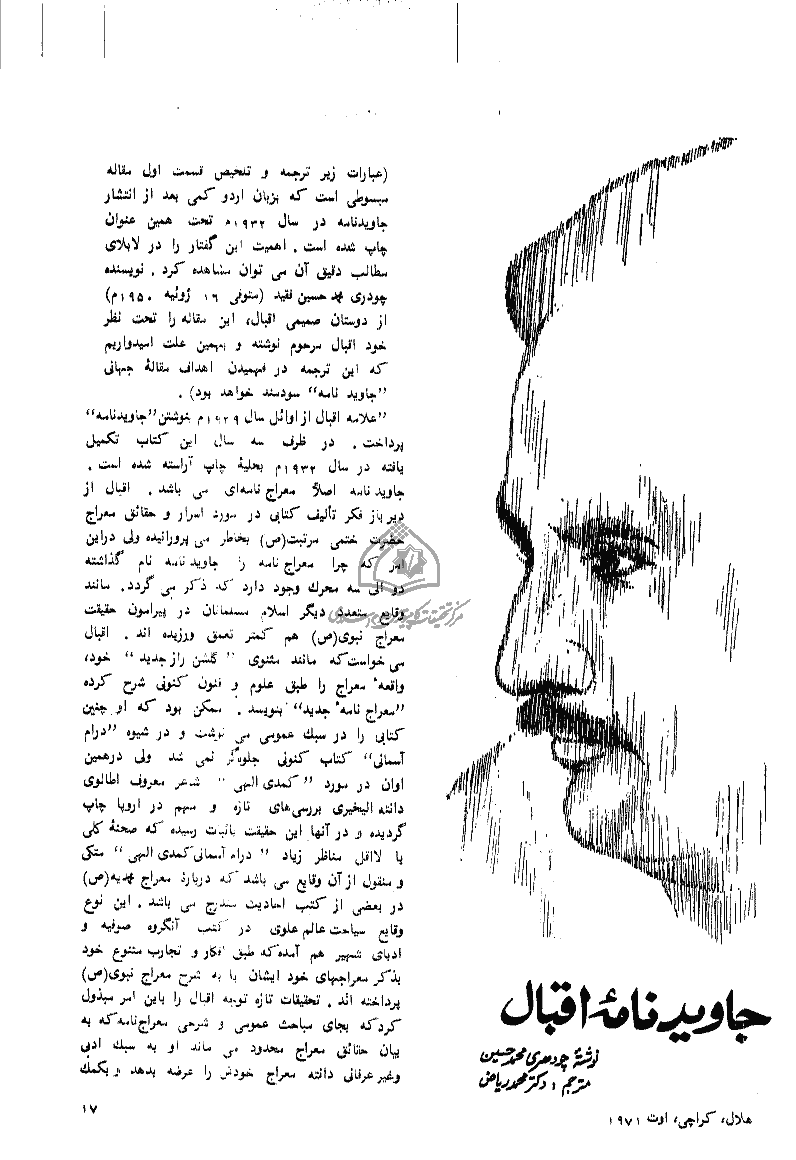 جاوید نامهٔ اقبال
نوشتهٔ چودهری محمد حسین
مترجم : دکتر محمد ریاض
(عبارات زیر ترجمه و تلخیص قسمت اول مقاله
مبسوطی است که بزبان اردو کمی بعد از انتشار
جاویدنامه در سال ۱۹۳۲م تحت همین عنوان
چاپ شده است . اهمیت این گفتار را در لابلای
مطالب دقیق آن می توان مشاهده کرد . نویسنده
چودری محمد حسین فقید (متوفی ۱۶ ژوئیه ۱۹۵۰م)
از دوستان صمیمی اقبال، این مقاله را تحت نظر
خود اقبال مرحوم نوشته و بهمین علت امیدواریم
که این ترجمه در فهمیدن اهداف مقالهٔ جهانی
”جاوید نامه“ سودمند خواهد بود) .
”علامه اقبال از اوائل سال ۱۹۲۹م بنوشتن ”جاویدنامه“
پرداخت . در ظرف سه سال این کتاب تکمیل
یافته در سال ۱۹۳۲م بحلیهٔ چاپ آراسته شده است .
جاوید نامه اصلاً معراج نامه‌ای می باشد . اقبال از
دیر باز فکر تألیف کتابی در مورد اسرار و حقائق معراج
حضرت ختمی مرتبت(ص) بخاطر می پرورانیده ولی دراین
امر که چرا معراج نامه را جاوید نامه نام گذاشته
دو الی سه محرک وجود دارد که ذکر می گردد . مانند
وقایع متعدد دیگر اسلام مسلمانان در پیرامون حقیقت
معراج نبوی(ص) هم کمتر تعمق ورزیده اند . اقبال
می خواست که مانند مثنوی ” گلشن راز جدید “ خود،
واقعهٔ معراج را طبق علوم و فنون کنونی شرح کرده
”معراج نامهٔ جدید“ بنویسد . ممکن بود که او چنین
کتابی را در سبک عمومی می نوشت و در شیوه ”درام
آسمانی“ کتاب کنونی جلوه‌گر نمی شد ولی درهمین
اوان در مورد ”کمدی الهی“ شاعر معروف اطالوی
دانته الیخیری بررسی‌های تازه و مهم در اروپا چاپ
گردیده و در آنها این حقیقت باثبات رسیده که صحنهٔ کلی
یا لااقل مناظر زیاد ” درام آسمانی کمدی الهی “ متکی
و منقول از آن وقایع می باشد که دربارهٔ معراج محمدیه(ص)
در بعضی از کتب احادیث مندرج می باشد . این نوع
وقایع سیاحت عالم علوی در کتب آنگروه صوفیه و
ادبای شهیر هم آمده که طبق افکار و تجارب متنوع خود
بذکر معراجهای خود ایشان یا به شرح معراج نبوی(ص)
پرداخته اند . تحقیقات تازه توجه اقبال را باین امر مبذول
کرد که بجای مباحث عمومی و شرحی معراج‌نامه که به
بیان حقائق معراج محدود می ماند او به سبک ادبی
وغیر عرفانی دانته معراج خودش را عرضه بدهد و بکمک
هلال، کراچی، اوت ۱۹۷۱
۱۷